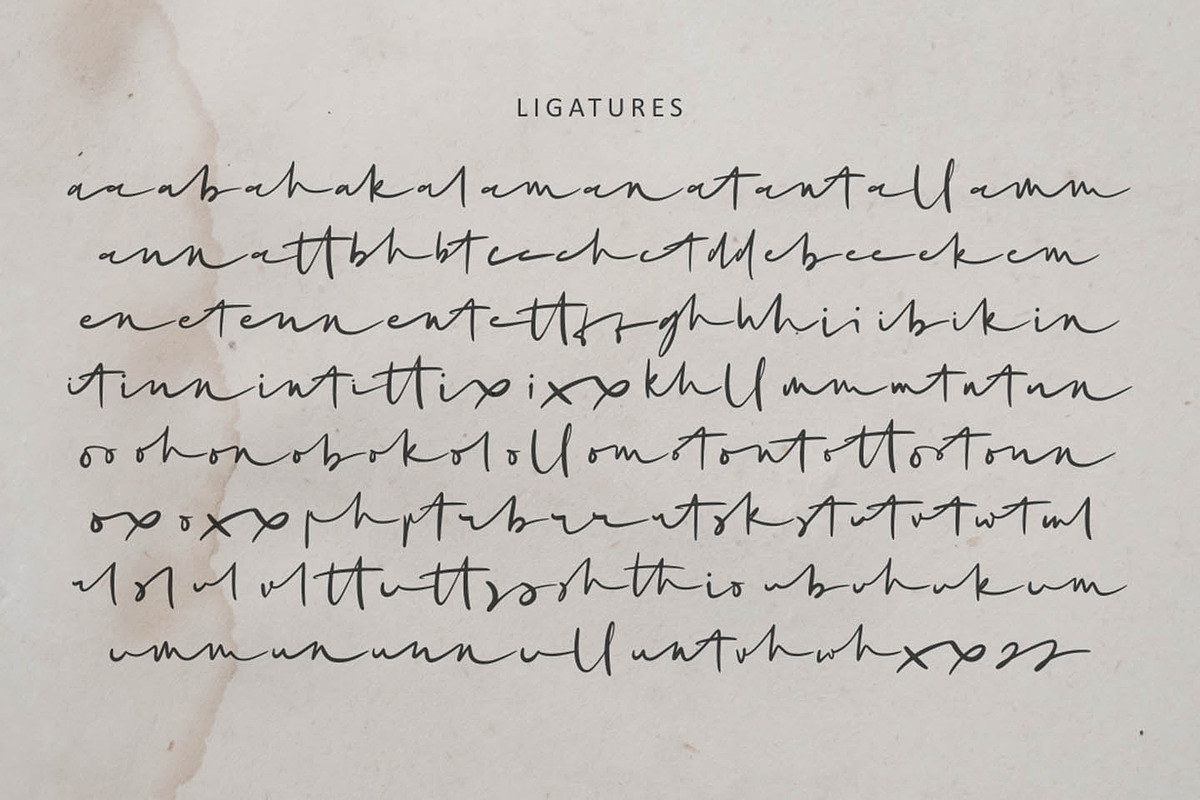 LIGATURES
aa ab ah ak al am an at ant all amm
ann att bh bt cc ch ct dd eb ee ek em
en et enn ent ett ff gh hh ii ib ik in
it inn int itt ix ixx kh ll mm mt nt nn
oo oh on ob ok ol oll om ot ont ott ost onn
ox oxx ph pt rb rr rt sk st ut vt wt wl
rl sl ul vl tt utt ss sh tth is ub uh uk um
umm un unn ull unt vh wh xx zz